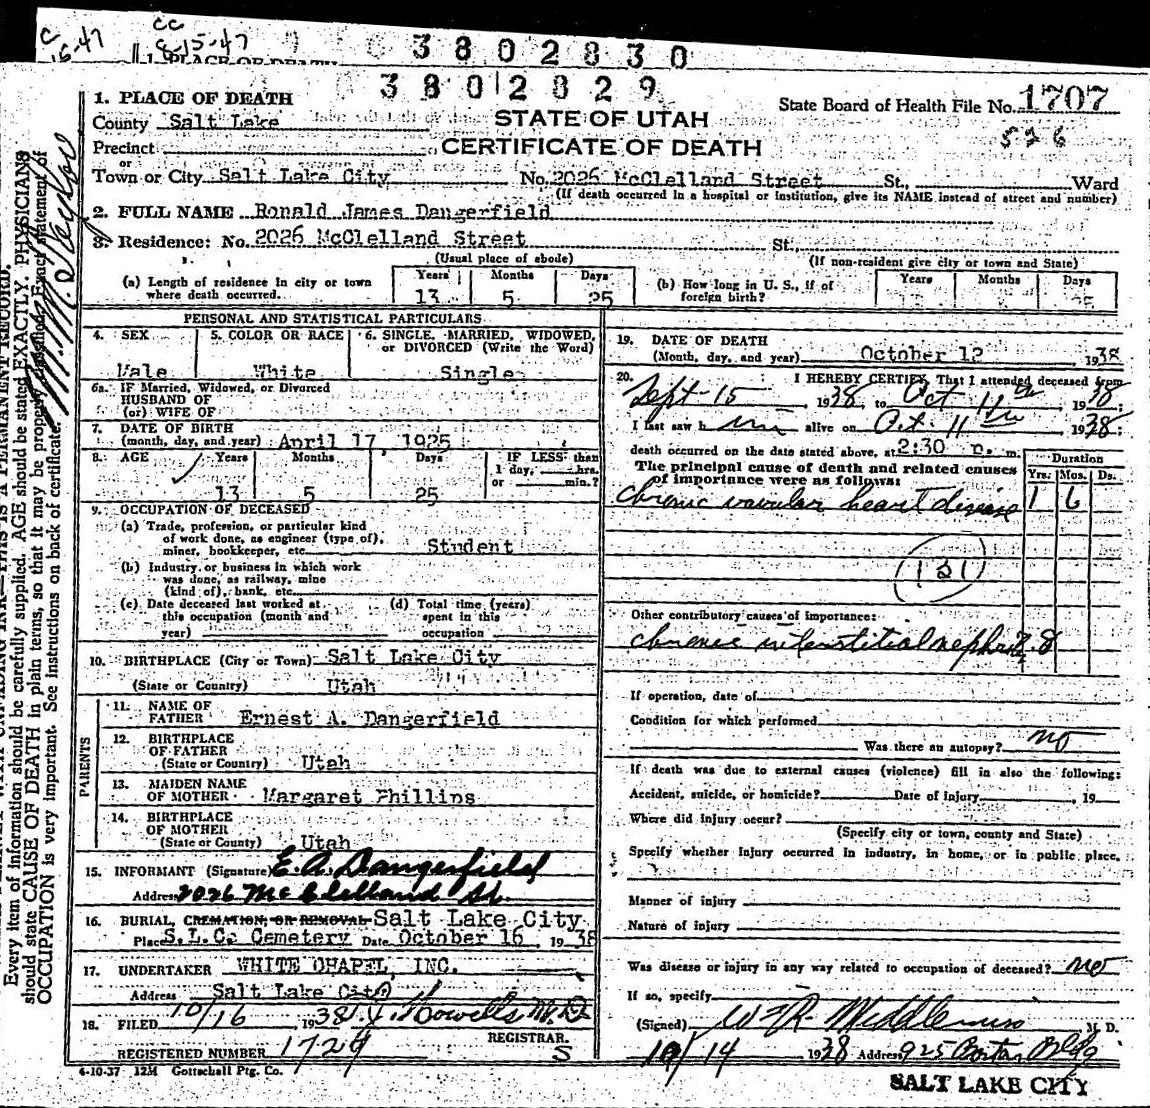 cc
8-15-47
3802830
3802829
1. PLACE OF DEATH
State Board of Health File No. 1707
County Salt Lake
STATE OF UTAH
526
Precinct
CERTIFICATE OF DEATH
or
Town or City Salt Lake City No. 2026 McClelland Street St., Ward
(If death occurred in a hospital or institution, give its NAME instead of street and number)
2. FULL NAME Ronald James Dangerfield
3. Residence: No. 2026 McClelland Street St.
(Usual place of abode) (If non-resident give city or town and State)
(a) Length of residence in city or town where death occurred. Years 13 Months 5 Days 25
(b) How long in U. S., if of foreign birth? Years Months Days
PERSONAL AND STATISTICAL PARTICULARS
4. SEX Male
5. COLOR OR RACE White
6. SINGLE, MARRIED, WIDOWED, or DIVORCED (Write the Word) Single
6a. IF Married, Widowed, or Divorced
HUSBAND OF
(or) WIFE OF
7. DATE OF BIRTH
(month, day, and year) April 17 1925
8. AGE Years 13 Months 5 Days 25
IF LESS than 1 day, hrs. or min.?
9. OCCUPATION OF DECEASED
(a) Trade, profession, or particular kind
of work done, as engineer (type of),
miner, bookkeeper, etc. Student
(b) Industry or business in which work
was done, as railway, mine
(kind of), bank, etc.
(c) Date deceased last worked at this occupation (month and year)
(d) Total time (years) spent in this occupation
10. BIRTHPLACE (City or Town) Salt Lake City
(State or Country) Utah
PARENTS
11. NAME OF
FATHER Ernest A. Dangerfield
12. BIRTHPLACE
OF FATHER
(State or Country) Utah
13. MAIDEN NAME
OF MOTHER Margaret Phillips
14. BIRTHPLACE
OF MOTHER
(State or Country) Utah
15. INFORMANT (Signature) E. A. Dangerfield
Address 2026 McClelland St.
16. BURIAL, CREMATION, OR REMOVAL Salt Lake City
Place S.L.C. Cemetery Date October 16, 1938
17. UNDERTAKER WHITE CHAPEL, INC.
Address Salt Lake City
18. FILED 10/16, 1938
REGISTRAR.
REGISTERED NUMBER 1729 S
4-10-37 12M Gottschall Ptg. Co.
19. DATE OF DEATH
(Month, day, and year) October 12 1938
20. I HEREBY CERTIFY, That I attended deceased from
Sept-15 1938, to Oct 11th 1938;
I last saw him alive on Oct. 11th 1938;
death occurred on the date stated above, at 2:30 m.
The principal cause of death and related causes
of importance were as follows:
Duration
Yrs. Mos. Ds.
chronic valvular heart disease 1 6
131
Other contributory causes of importance:
chronic interstitial nephritis
If operation, date of
Condition for which performed
Was there an autopsy? no
If death was due to external causes (violence) fill in also the following:
Accident, suicide, or homicide? Date of injury , 19
Where did injury occur?
(Specify city or town, county and State)
Specify whether injury occurred in industry, in home, or in public place.
Manner of injury
Nature of injury
Was disease or injury in any way related to occupation of deceased? no
If so, specify
(Signed) M. D.
10/14 1938 Address 925 Boston Bldg
SALT LAKE CITY
Every item of information should be carefully supplied. AGE should be stated EXACTLY. PHYSICIANS
should state CAUSE OF DEATH in plain terms, so that it may be properly classified. Exact statement of
OCCUPATION is very important. See instructions on back of certificate.